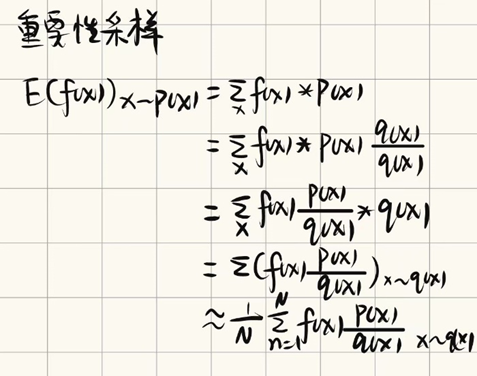 重要性采样
E(f(x))x~p(x) = Σx f(x) * p(x)
= Σx f(x) * p(x) q(x)/q(x)
= Σx f(x) p(x)/q(x) * q(x)
= Σ(f(x) p(x)/q(x))x~q(x)
≈ 1/N Σn=1^N f(x) p(x)/q(x) x~q(x)